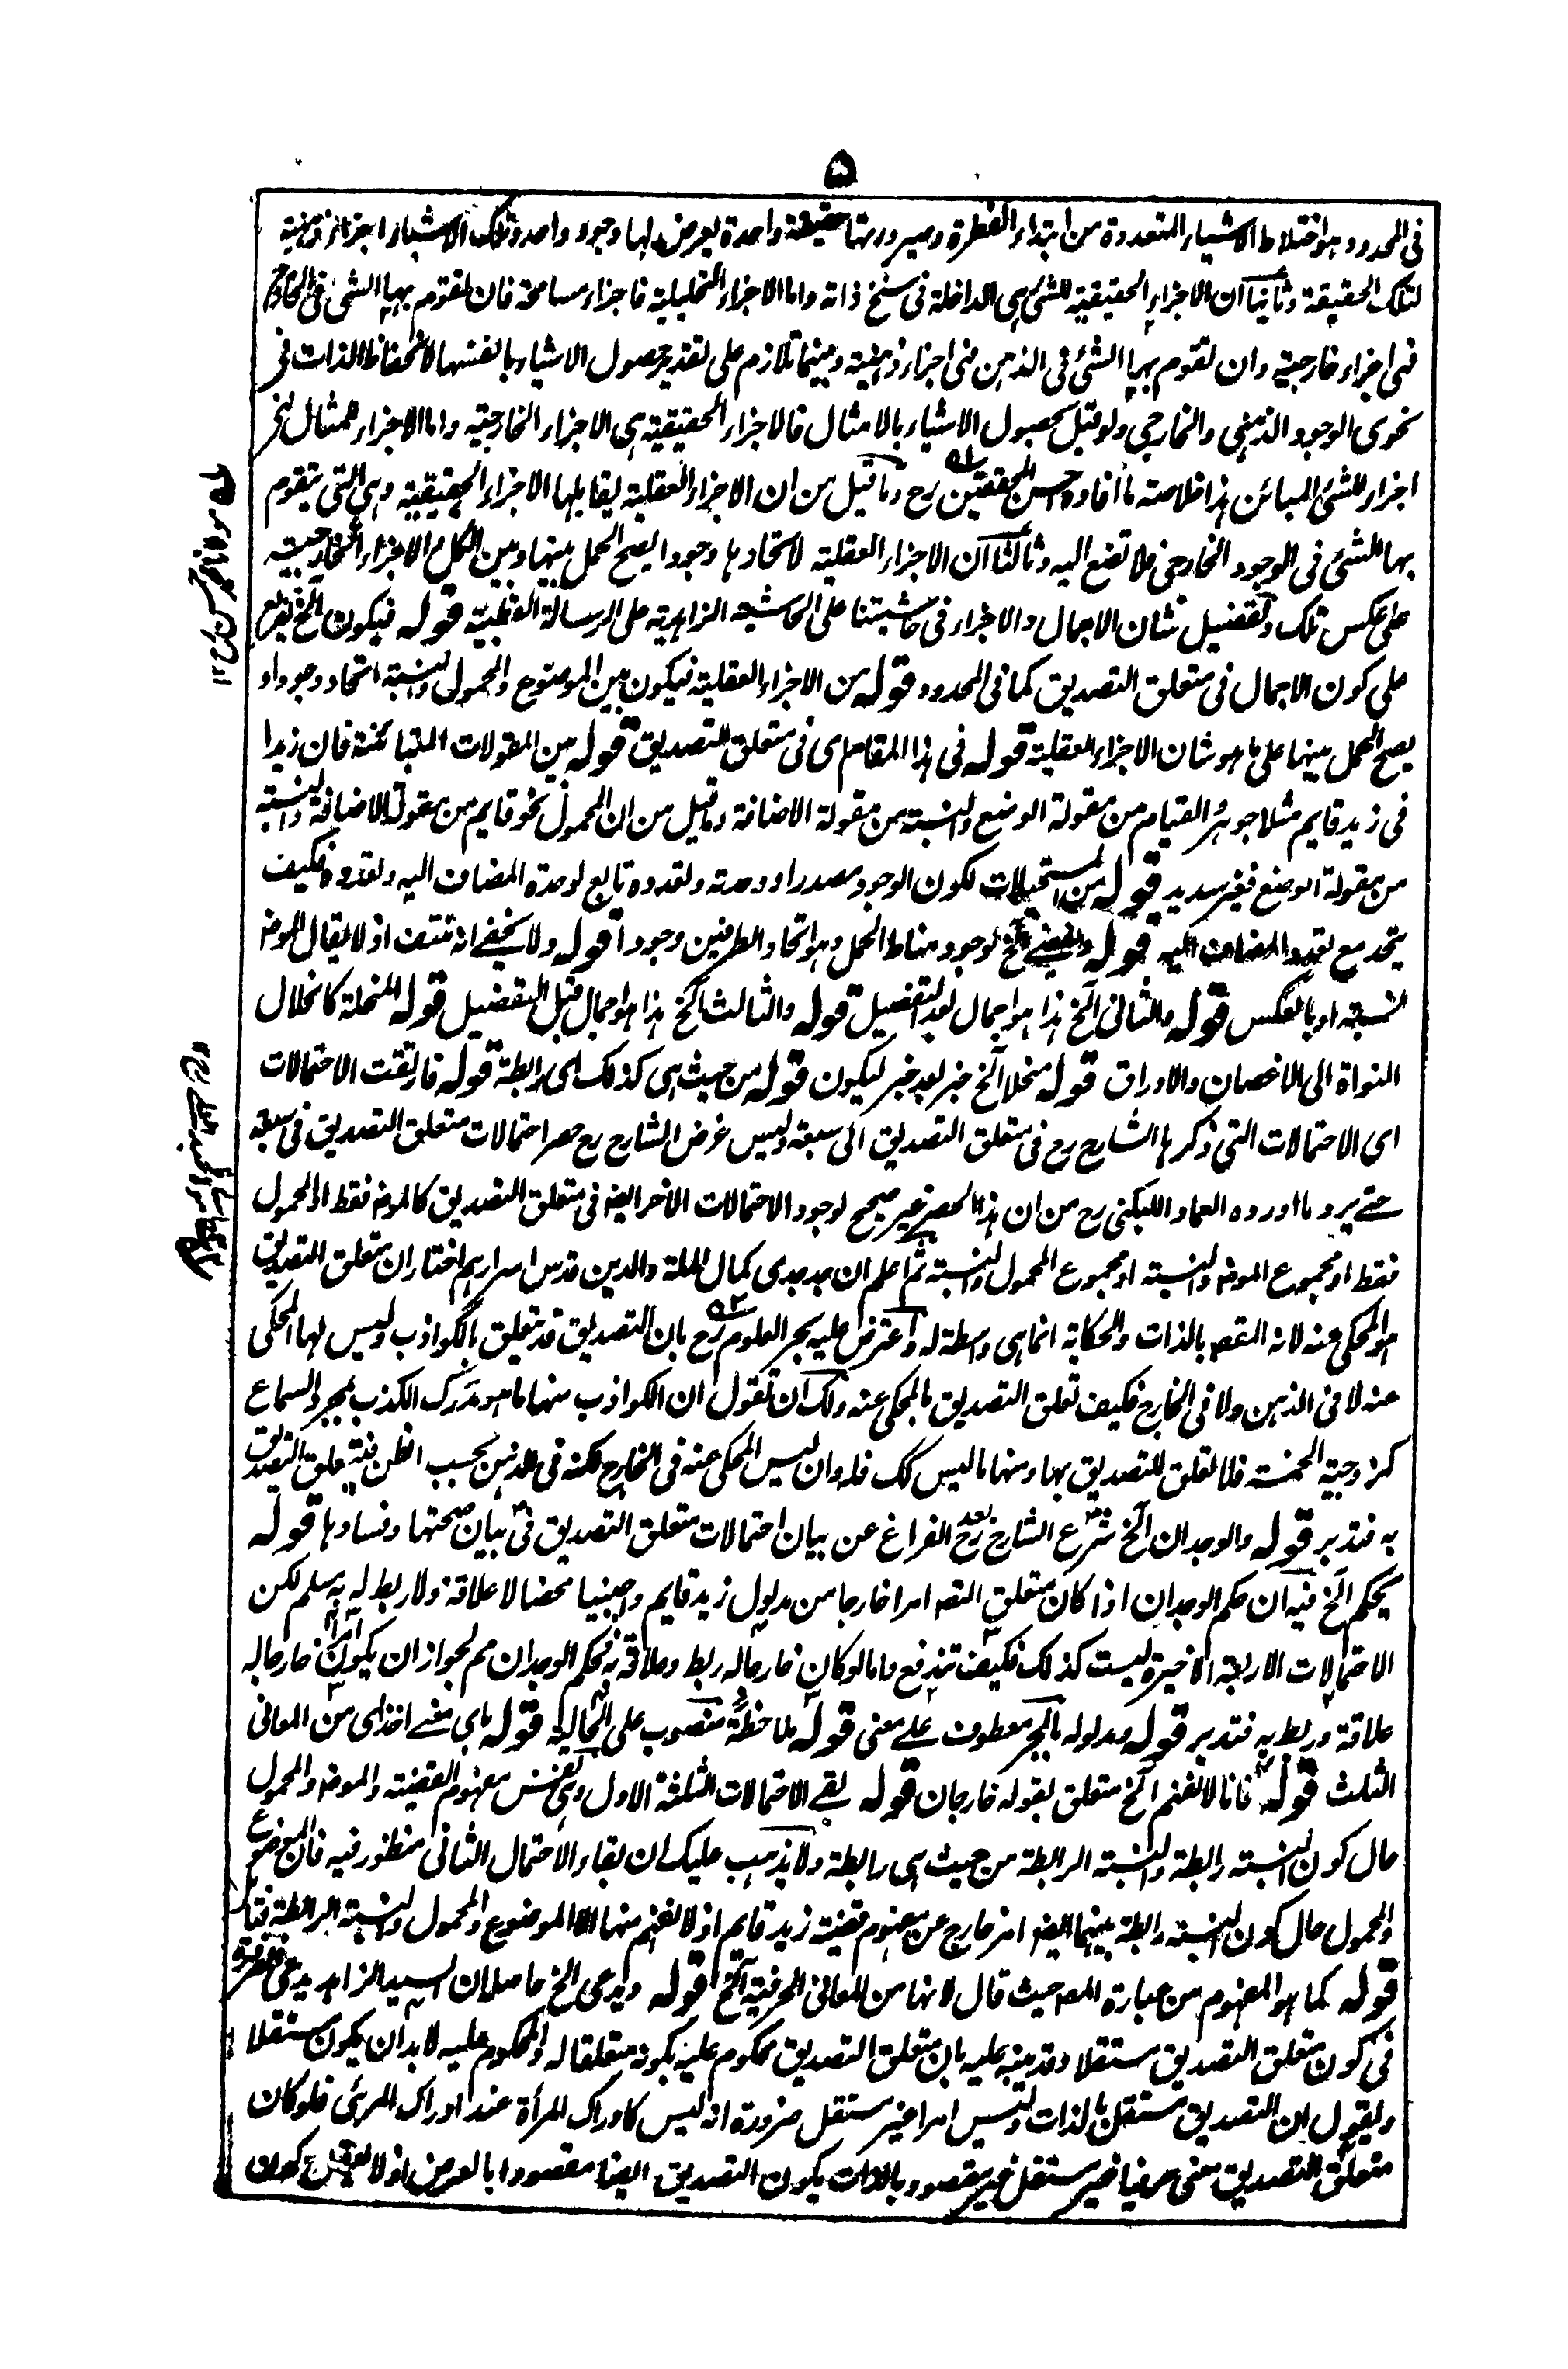 ۵
فی المحدود وہو اختلاط الاشیاء المتعددة من ابتداء الفطرة وصیرورتہا حقیقة واحدة یعرض لہا وجود واحد وتلک الاشیاء اجزاء ذہنیة
لتلک الحقیقة وثانیا ان الاجزاء الحقیقیة للشئ ہی الداخلة فی سنخ ذاتہ واما الاجزاء التحلیلیة فاجزاء مسامحة فان تقوم بہا الشئ فی الخارج
فہی اجزاء خارجیة وان تقوم بہا الشئ فی الذہن فہی اجزاء ذہنیة وبینہما تلازم علی تقدیر حصول الاشیاء بانفسہا لانحفاظ الذات فی
نحوی الوجود الذہنی والخارجی ولو قیل بحصول الاشیاء بالامثال فالاجزاء الحقیقیة ہی الاجزاء الخارجیة واما الاجزاء للمثال فہی
اجزاء للشئ المبائن ہذا خلاصة ما افادہ احسن المحققین رح وما قیل من ان الاجزاء العقلیة یقابلہا الاجزاء الحقیقیة وہی التی یتقوم
بہا الشئ فی الوجود الخارجی فلا تضع الیہ وثالثا ان الاجزاء العقلیة لاتحادہا وجودا یصح الحمل بینہا وبین الکل والاجزاء الخارجیة
علی عکس تلک وتفصیل شان الاجمال والاجزاء فی حاشیتنا علی الحاشیة الزاہدیة علی الرسالة القطبیة قولہ فیکون الخ تفریع
علی کون الاجمال فی متعلق التصدیق کما فی المحدود قولہ من الاجزاء العقلیة فیکون بین الموضوع والمحمول والنسبة اتحاد وجودا و
یصح الحمل بینہا علی ما ہو شان الاجزاء العقلیة قولہ فی ہذا المقام ای فی متعلق التصدیق قولہ من المقولات المتبائنة فان زیدا
فی زید قایم مثلا جوہر والقیام من مقولة الوضع والنسبة من مقولة الاضافة وما قیل من ان المحمول نحو قایم من مقولة الاضافة والنسبة
من مقولة الوضع فغیر سدید قولہ من المستحیلات لکون الوجود مصدرا ووحدتہ وتعددہ تابع لوحدة المضاف الیہ وتعددہ فکیف
یتحد مع تعدد المضاف الیہ قولہ والیفضی الخ لوجود مناط الحمل وہو اتحاد الطرفین وجودا قولہ ولا یخفی انہ منتف اذ لا یقال الموضوع
النسبة او بالعکس قولہ والثانی الخ ہذا ہو اجمال بعد التفصیل قولہ والثالث الخ ہذا ہو اجمال قبل التفصیل قولہ المنحلة کانحلال
النواة الی الاغصان والاوراق قولہ منحلا الخ خبر بعد خبر لیکون قولہ من حیث ہی کذلک ای رابطة قولہ فارتقت الاحتمالات
ای الاحتمالات التی ذکرہا الشارح رح فی متعلق التصدیق الی سبعة ولیس غرض الشارح رح حصر احتمالات متعلق التصدیق فی سبعة
حتے یرد ما اوردہ العماد اللبکنی رح من ان ہذا الحصر غیر صحیح لوجود الاحتمالات الأخر ایضا فی متعلق التصدیق کالموضوع فقط او المحمول
فقط او مجموع الموضوع والنسبة او مجموع المحمول والنسبة ثم اعلم ان جد جدی کمال الملة والدین قدس اسرارہم اختار ان متعلق التصدیق
ہو المحکی عنہ لانہ المقصود بالذات والحکایة انما ہی واسطة لہ واعترض علیہ بحر العلوم رح بان التصدیق قد یتعلق بالکواذب ولیس لہا المحکی
عنہ لا فی الذہن ولا فی الخارج فکیف تعلق التصدیق بالمحکی عنہ ولک ان تقول ان الکواذب منہا ما ہو مدرک الکذب بمجرد السماع
کزوجیة الخمسة فلا تعلق للتصدیق بہا ومنہا ما لیس کک فلہ وان لیس المحکی عنہ فی الخارج لکنہ فی الذہن بحسب الظن فیتعلق التصدیق
بہ فتدبر قولہ والوجدان الخ شرع الشارح رح بعد الفراغ عن بیان احتمالات متعلق التصدیق فی بیان صحتہا وفسادہا قولہ
یحکم الخ فیہ ان حکم الوجدان اذا کان متعلق التصدیق امرا خارجا من مدلول زید قایم واجنبیا محضا لا علاقة ولا ربط لہ بہ مسلم لکن
الاحتمالات الاربعة الاخیرة لیست کذلک فکیف تندفع واما لو کان خارجا لہ ربط وعلاقة بہ فحکم الوجدان مم لجواز ان یکون امرا خارجا لہ
علاقة وربط بہ فتدبر قولہ ومدلولہ بالجر معطوف علے معنی قولہ ملاحظة منصوب علی الحالیة قولہ بای معنے اخذ ای من المعانی
الثلث قولہ فانا لا نفہم الخ متعلق بقولہ خارجان قولہ بقے الاحتمالات الثلثة الاول وہی نفس مفہوم القضیة والموضوع والمحمول
حال کون النسبة رابطة والنسبة الرابطة من حیث ہی رابطة ولا یذہب علیک ان بقاء الاحتمال الثانی منظور فیہ فان الموضوع
والمحمول حال کون النسبة رابطة بینہما ایضا امر خارج عن مفہوم قضیة زید قایم اذ لا نفہم منہا الا الموضوع والمحمول والنسبة الرابطة فتامل
قولہ کما ہو المفہوم من عبارة المصنف حیث قال لانہا من المعانی الحرفیة الخ قولہ ویدعی الخ حاصلہ ان السید الزاہد یدعی الضرورة
فی کون متعلق التصدیق مستقلا وقد ینبہ علیہ بان متعلق التصدیق محکوم علیہ بکونہ متعلقا لہ والمحکوم علیہ لا بد ان یکون مستقلا
ویقول ان التصدیق مستقل بالذات ولیس امرا غیر مستقل ضرورة انہ لیس کادراک المرأة عند ادراک المرئی فلو کان
متعلق التصدیق معنی حرفیا غیر مستقل غیر مقصود بالذات یکون التصدیق ایضا مقصودا بالعرض اذ لا یعقل کون